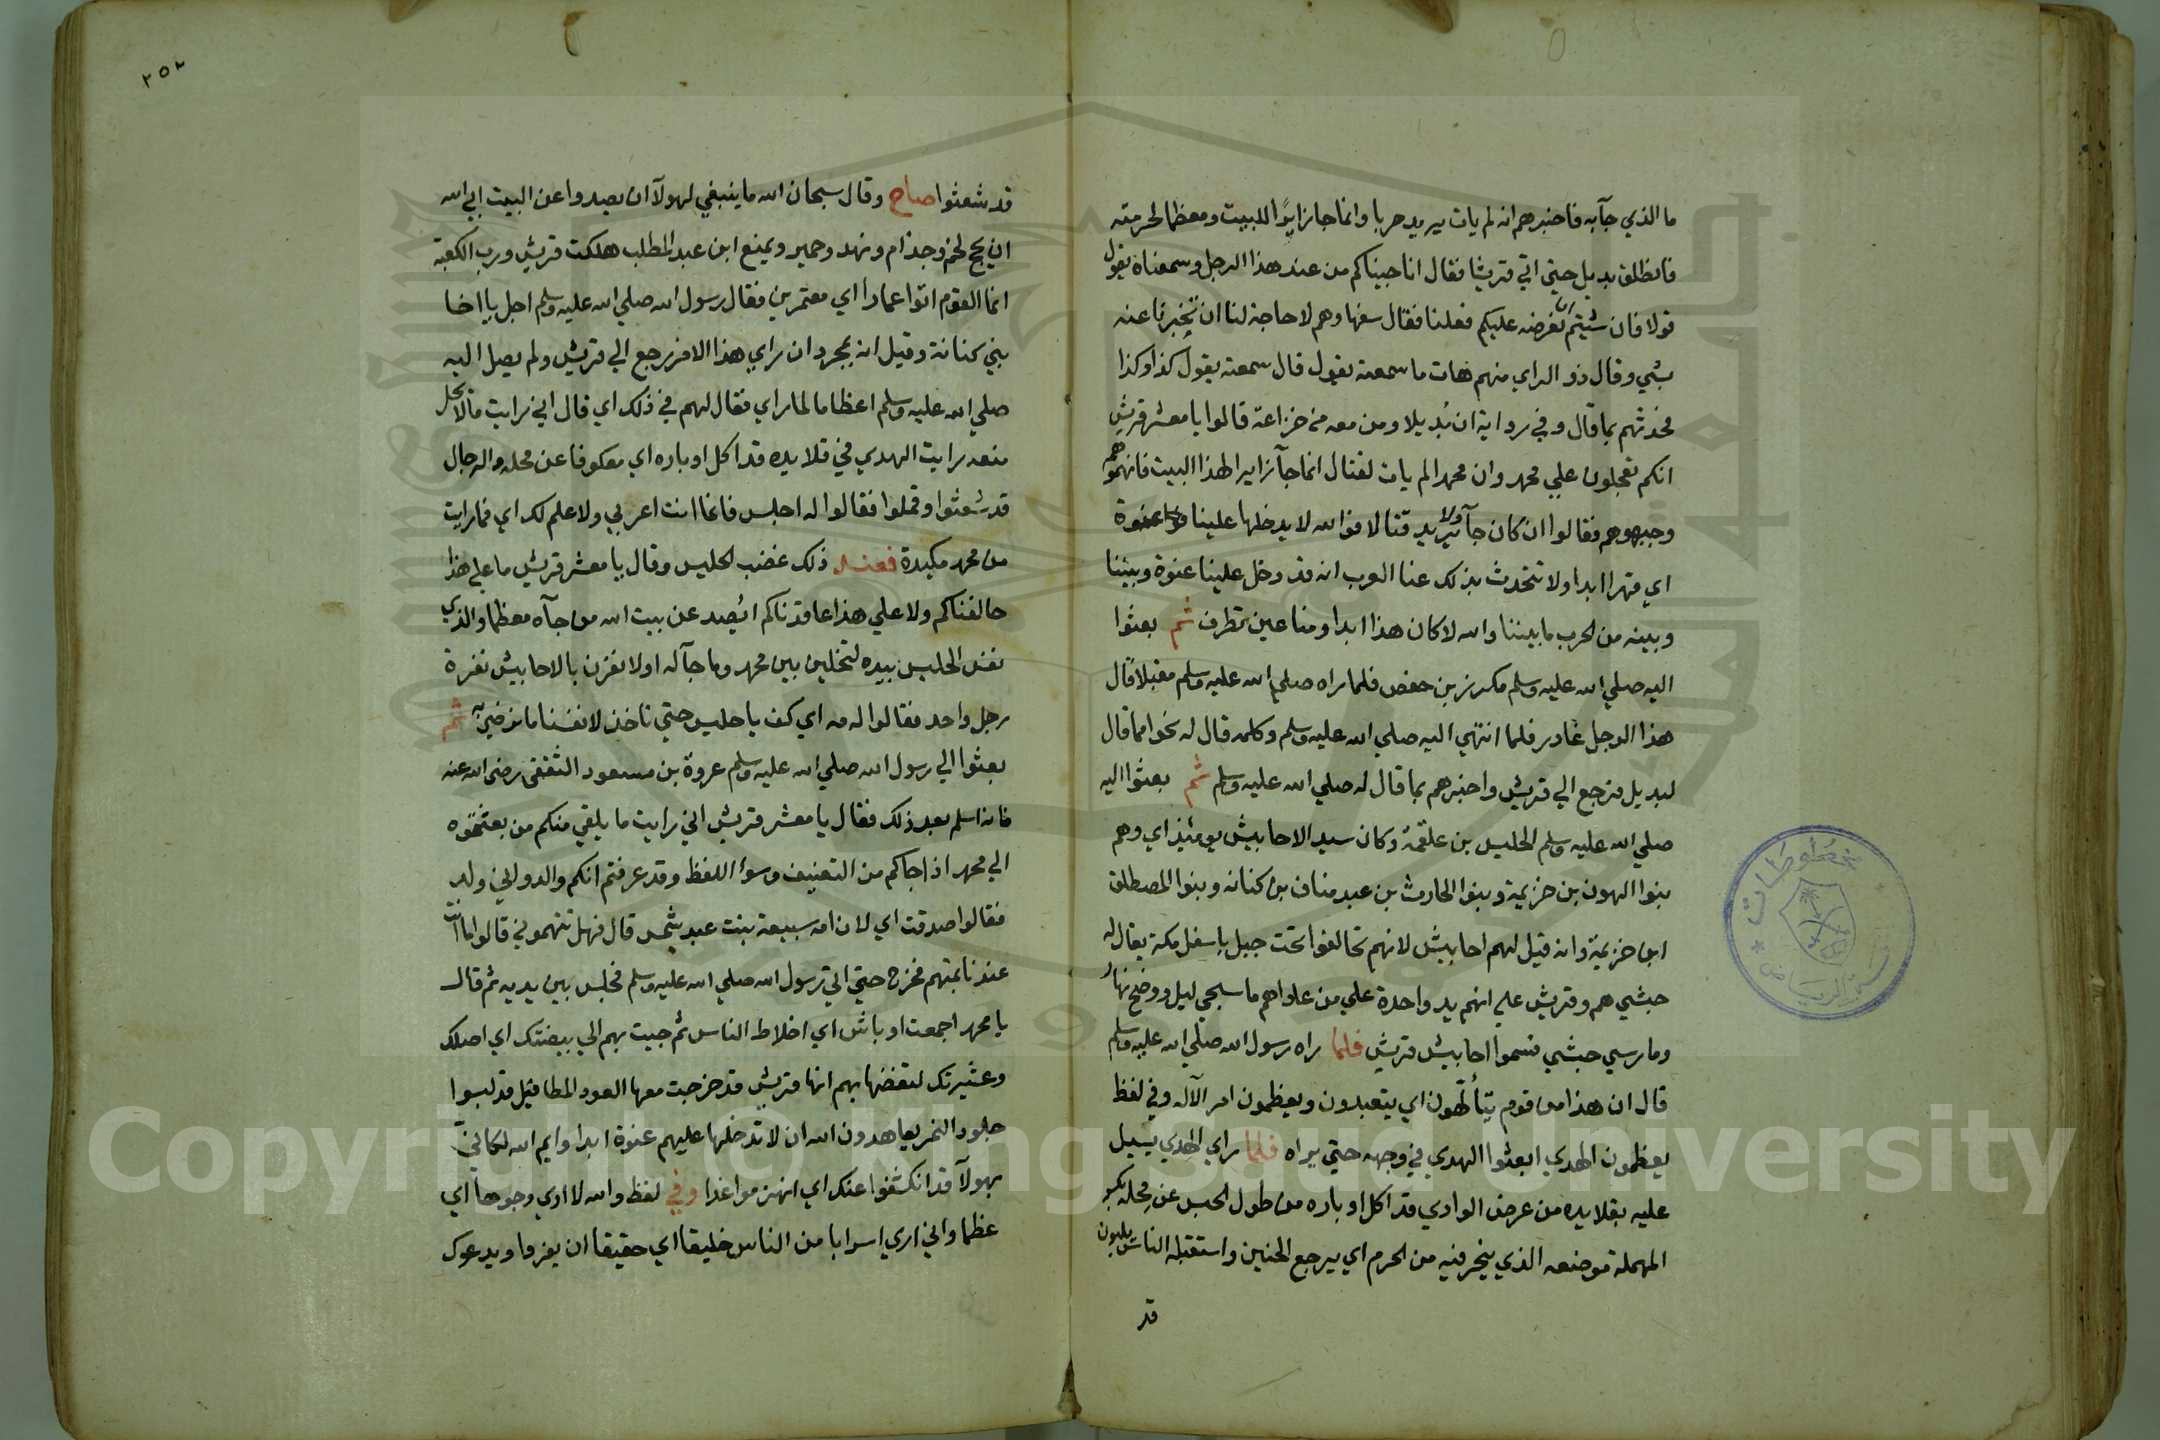 ما الذي جآ به فاخبرهم انه لم يات يريد حربا وانما جا زايرًا للبيت ومعظما لحرمته
فانطلق بديل حتي اتي قريشا فقال انا جيناكم من عند هذا الرجل وسمعناه يقول
قولا فان شيتم ان نعرضه عليكم فعلنا فقال سفهاوهم لا حاجة لنا ان تخبرنا عنه
بشي وقال ذو الراي منهم هات ما سمعته يقول قال سمعته يقول كذا وكذا
فحدثهم بما قال وفي رواية ان بُديلا ومن معه من خزاعة قالوا يا معشر قريش
انكم تعجلون علي محمد وان محمدا لم يات لقتال انما جآ زايرا لهذا البيت فاتهموهم
وجبهوهم فقالوا ان كان جآ ولا يريد قتالا فوالله لا يدخلها علينا عنوة
اي قهرا ابدا ولا تتحدث بذلك عنا العرب انه قد دخل علينا عنوة وبيننا
وبينه من الحرب ما بيننا والله لا كان هذا ابدا ومنا عين تطرف ثم بعثوا
اليه صلي الله عليه وسلم مكرز بن حفص فلما راه صلي الله عليه وسلم مقبلا قال
هذا الرجل غادر فلما انتهي اليه صلي الله عليه وسلم وكلمه قال له نحوا مما قال
لبديل فرجع الي قريش واخبرهم بما قال له صلي الله عليه وسلم ثم بعثوا اليه
صلي الله عليه وسلم الحليس بن علقمة وكان سيد الاحابيش يومئذ اي وهم
بنوا الهون بن خزيمة وبنوا الحارث بن عبد مناف بن كنانه وبنوا المصطلق
ابن خزيمة وانه قيل لهم احابيش لانهم تحالفوا تحت جبل باسفل مكة يقال له
حبشي هم وقريش علي انهم يد واحدة علي من عاداهم ما سجي ليل ووضح نهار
وما رسي حبشي فسموا احابيش قريش فلما راه رسول الله صلي الله عليه وسلم
قال ان هذا من قوم يتألّهون اي يتعبدون ويعظمون امر الآله وفي لفظ
يعظمون الهدي ابعثوا الهدي في وجهه حتي يراه فلما راي الهدي يسيل
عليه بقلايده من عرض الوادي قد اكل اوباره من طول الحبس عن محله بكسر
المهملة موضعه الذي ينحر فيه من الحرم اي يرجع الحنين واستقبله الناس يلبون
قد
٢٥٢
قد شعثوا صاح وقال سبحان الله ما ينبغي لهولآ ان يصدوا عن البيت ابي الله
ان يحج لخم وجذام ونهد وحمير ويمنع ابن عبد المطلب هلكت قريش ورب الكعبة
انما القوم اتوا عمارا اي معتمرين فقال رسول الله صلي الله عليه وسلم اجل يا اخا
بني كنانة وقيل انه بمجرد ان راي هذا الامر رجع الي قريش ولم يصل اليه
صلي الله عليه وسلم اعظاما لما راي فقال لهم في ذلك اي قال اني رايت ما لا يحل
منعه رايت الهدي في قلايده قد اكل اوباره اي معكوفا عن محله والرجال
قد شعثوا وقملوا فقالوا له اجلس فانما انت اعربي ولا علم لك اي فما رايت
من محمد مكيدة فعند ذلك غضب الحليس وقال يا معشر قريش ما علي هذا
حالفناكم ولا علي هذا عاقدناكم ايُصد عن بيت الله من جآه معظما والذي
نفس الحليس بيده لتخلين بين محمد وما جآ له اولا نفرن بالاحابيش نفرة
رجل واحد فقالوا له مه اي كف يا حليس حتي ناخذ لانفسنا ما نرضي به ثم
بعثوا الي رسول الله صلي الله عليه وسلم عروة بن مسعود الثقفي رضي الله عنه
فانه اسلم بعد ذلك فقال يا معشر قريش اني رايت ما يلقي منكم من بعثتموه
الي محمد اذا جاكم من التعنيف وسوء اللفظ وقد عرفتم انكم والد واني ولد
فقالوا صدقت اي لان امه سبيعة بنت عبد شمس قال فهل تتهموني قالوا ما انت
عندنا بمتهم فخرج حتي اتي رسول الله صلي الله عليه وسلم فجلس بين يديه ثم قال
يا محمد اجمعت اوباش اي اخلاط الناس ثم جيت بهم الي بيضتك اي اصلك
وعشيرتك لتفضها بهم انها قريش قد خرجت معها العوذ المطافيل قد لبسوا
جلود النمر يعاهدون الله ان لا تدخلها عليهم عنوة ابدا وايم الله لكاني
بهولآ قد انكشفوا عنك اي انهزموا غدا وفي لفظ والله لا اري وجوها اي
عظما واني اري اسرابا من الناس خليقا اي حقيقا ان يفروا ويدعوك
Copyright © King Saud University